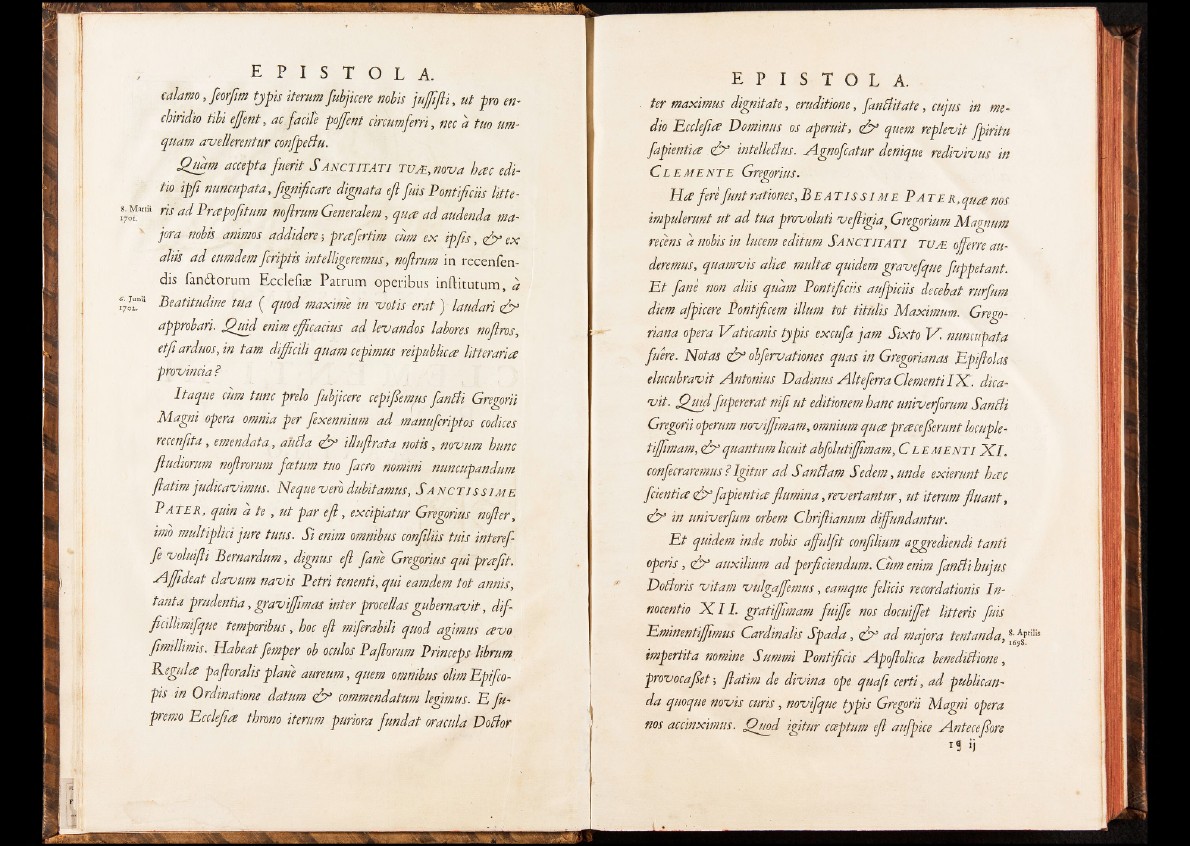 EPISTOLA.
calamo, ſeorſim typis iterum ſubjicere nobis juſſiſti, ut pro en-
chiridio tibi eſſent, ac facilè poſſent circumferri, nec à tuo um-
quam avellerentur conſpectu.
Quàm accepta fuerit SANCTITATI TUÆ, nova hæc edi-
tio ipſi nuncupata, ſignificare dignata eſt ſuis Pontificiis litte-
8. Martii
1701.
ris ad Præpoſitum noſtrum Generalem, quæ ad audenda ma-
jora nobis animos addidere; præſertim cùm ex ipſis, & ex
aliis ad eumdem ſcriptis intelligeremus, noſtrum in recenſen-
dis ſanctorum Eccleſiæ Patrum operibus inſtitutum, à
6. Junii
1702.
Beatitudine tua ( quod maximè in votis erat ) laudari &
approbari. Quid enim efficacius ad levandos labores noſtros,
etſi arduos, in tam difficili quam cepimus reipublicæ litterariæ
provincia?
Itaque cùm tunc prelo ſubjicere cepißemus ſancti Gregorii
Magni opera omnia per ſexennium ad manuſcriptos codices
recenſita, emendata, aucta & illuſtrata notis, novum hunc
ſtudiorum noſtrorum fœtum tuo ſacro nomini nuncupandum
ſtatim judicavimus. Neque verò dubitamus, SANCTISSIME
PATER, quin à te, ut par eſt, excipiatur Gregorius noſter,
imò multiplici jure tuus. Si enim omnibus conſiliis tuis intereſ-
ſe voluiſti Bernardum, dignus eſt ſanè Gregorius qui præſit.
Aſſideat clavum navis Petri tenenti, qui eamdem tot annis,
tanta prudentia, graviſſimas inter procellas gubernavit, dif-
ficillimiſque temporibus, hoc eſt miſerabili quod agimus ævo
ſimillimis. Habeat ſemper ob oculos Paſtorum Princeps librum
Regulæ paſtoralis planè aureum, quem omnibus olim Epiſco-
pis in Ordinatione datum & commendatum legimus. E ſu-
premo Eccleſiæ throno iterum puriora fundat oracula Doctor
EPISTOLA.
ter maximus dignitate, eruditione, ſanctitate, cujus in me-
dio Eccleſiæ Dominus os aperuit, & quem replevit ſpiritu
ſapientiæ & intellectus. Agnoſcatur denique redivivus in
CLEMENTE Gregorius.
Hæ ferè ſunt rationes, BEATISSIME PATER, quæ nos
impulerunt ut ad tua provoluti veſtigia, Gregorium Magnum
recèns à nobis in lucem editum SANCTITATI TUÆ offerre au-
deremus, quamvis aliæ multæ quidem graveſque ſuppetant.
Et ſanè non aliis quàm Pontificiis auſpiciis decebat rurſum
diem aſpicere Pontificem illum tot titulis Maximum. Grego-
riana opera Vaticanis typis excuſa jam Sixto V. nuncupata
fuêre. Notas & obſervationes quas in Gregorianas Epiſtolas
elucubravit Antonius Dadinus Alteſerra Clementi IX. dica-
vit. Quid ſupererat niſi ut editionem hanc univerſorum Sancti
Gregorii operum noviſſimam, omnium quæ præceßerunt locuple-
tiſſimam, & quantum licuit abſolutiſſimam, CLEMENTI XI.
conſecraremus? Igitur ad Sanctam Sedem, unde exierunt hæc
ſcientiæ & ſapientiæ flumina, revertantur, ut iterum fluant,
& in univerſum orbem Chriſtianum diffundantur.
Et quidem inde nobis affulſit conſilium aggrediendi tanti
operis, & auxilium ad perficiendum. Cùm enim ſancti hujus
Doctoris vitam vulgaſſemus, eamque felicis recordationis In-
nocentio XII. gratiſſimam fuiſſe nos docuiſſet litteris ſuis
Eminentiſſimus Cardinalis Spada, & ad majora tentanda,
8. Aprilis
1698.
impertita nomine Summi Pontificis Apoſtolica benedictione,
provocaßet; ſtatim de divina ope quaſi certi, ad publican-
da quoque novis curis, noviſque typis Gregorii Magni opera
nos accinximus. Quod igitur cœptum eſt auſpice Anteceßore
ij